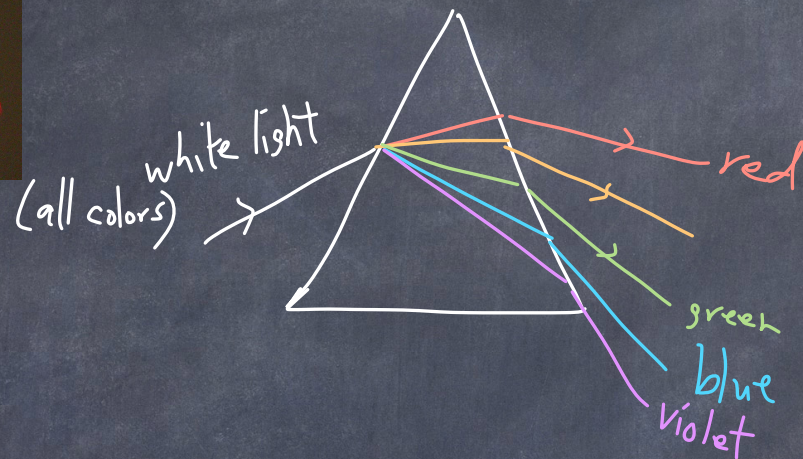 white light
(all colors)
red
green
blue
violet